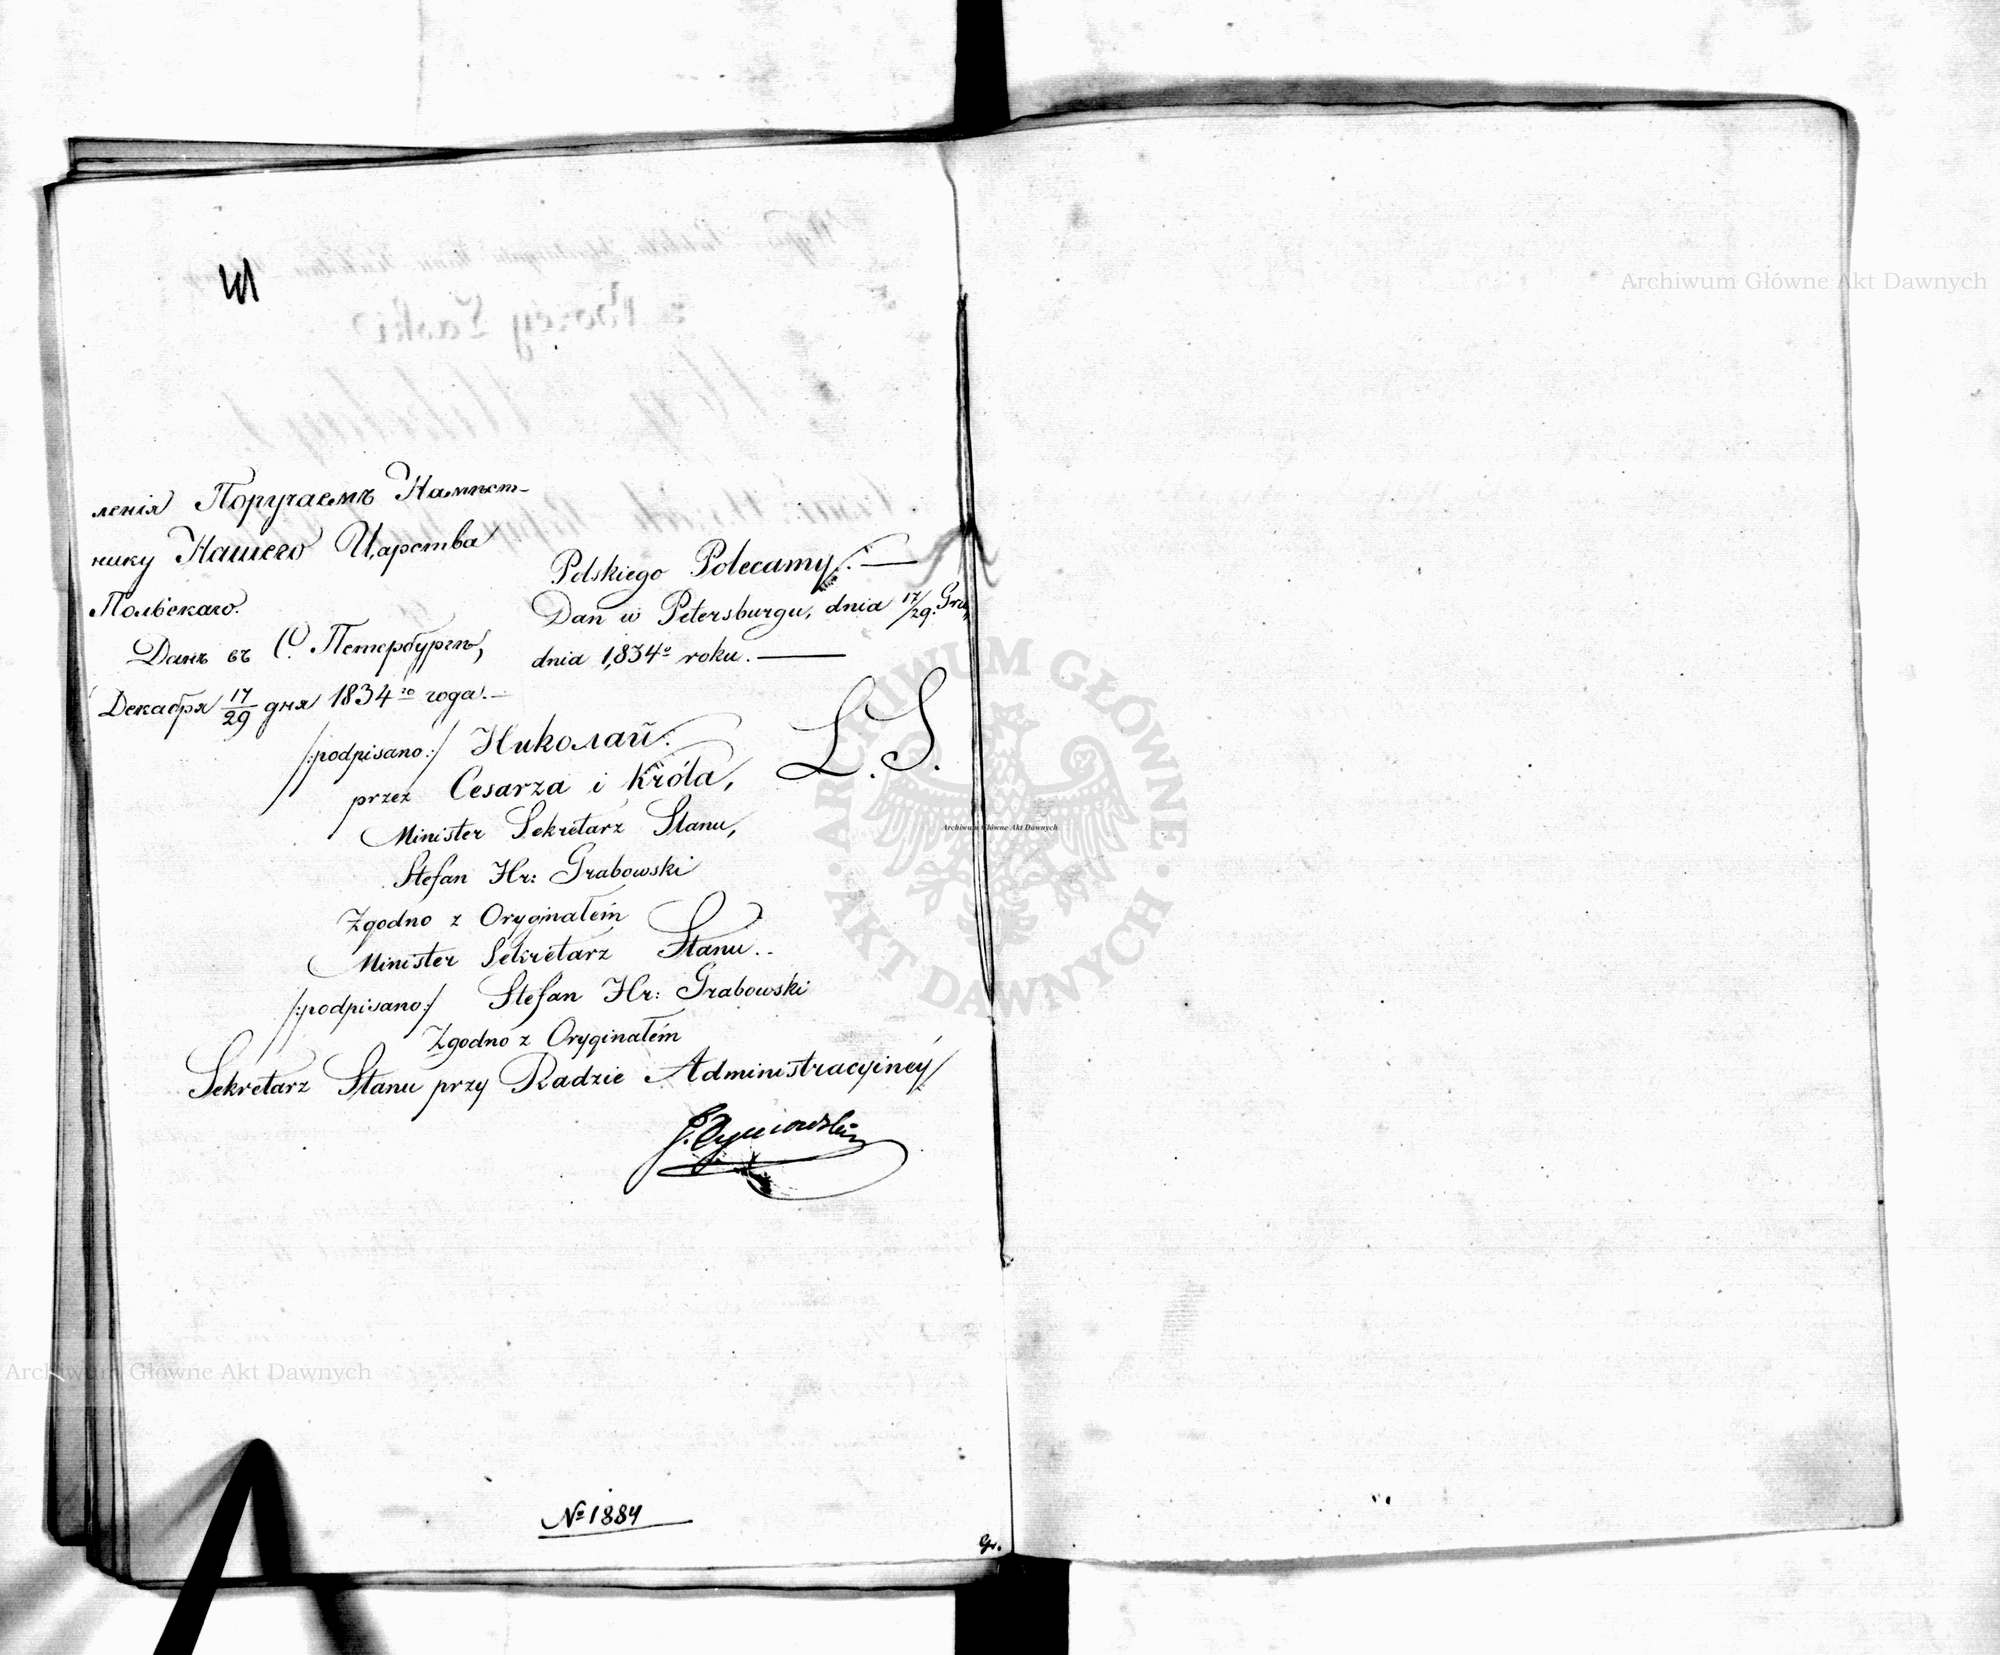 ленія Поручаемъ Намѣст-
нику Нашего Царства
Польскаго.
Данъ въ С. Петербургѣ,
Декабря 17/29 дня 1834го года.—
Polskiego Polecamy. —
Dan w Petersburgu, dnia 17/29. Gru„
dnia 1,834º roku. —
/:podpisano:/ Николай.
przez Cesarza i Króla,
Minister Sekretarz Stanu,
Stefan Hr: Grabowski
L. S.
Zgodno z Oryginałem
Minister Sekretarz Stanu..
/:podpisano:/ Stefan Hr: Grabowski
Zgodno z Oryginałem
Sekretarz Stanu przy Radzie Administracyjnéy
№ 1884
Gr.
Archiwum Główne Akt Dawnych
Archiwum Główne Akt Dawnych
Archiwum Główne Akt Dawnych
ARCHIWUM GŁÓWNE · AKT DAWNYCH ·